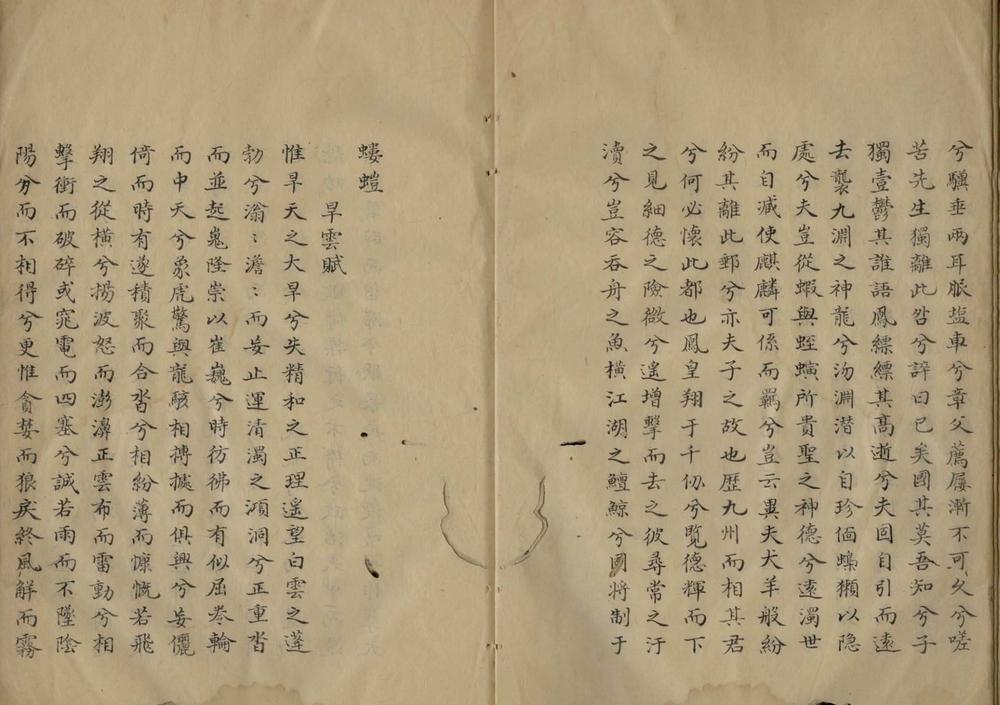 兮驥垂兩耳服塩車兮章父薦屨漸不可久兮嗟
苦先生獨離此咎兮誶曰已矣國其莫吾知兮子
獨壹鬱其誰語鳳縹縹其高逝兮夫固自引而遠
去襲九淵之神龍兮沕淵潜以自珍偭蟂獺以隐
處兮夫豈從蝦與蛭螾所貴聖之神德兮遠濁世
而自減使麒麟可係而羈兮豈云異夫犬羊般紛
紛其離此郵兮亦夫子之故也歷九州而相其君
兮何必懷此都也鳳皇翔于千仞兮覽德輝而下
之見細德之險微兮遙增擊而去之彼尋常之汙
瀆兮豈容吞舟之魚橫江湖之鱣鯨兮固將制于
螻螘
旱雲賦
惟旱天之大旱兮失精和之正理遥望白雲之蓬
勃兮滃〻澹〻而妄止運清濁之澒洞兮正重沓
而並起嵬隆崇以崔巍兮時彷彿而有似屈卷輪
而中天兮象虎驚與龍駭相摶據而俱興兮妄儷
倚而時有遂積聚而合沓兮相紛薄而慷慨若飛
翔之從橫兮揚波怒而澎濞正雲布而雷動兮相
擊衝而破碎或窕電而四塞兮誠若雨而不墜陰
陽分而不相得兮更惟貪婪而狼戾終風解而霧